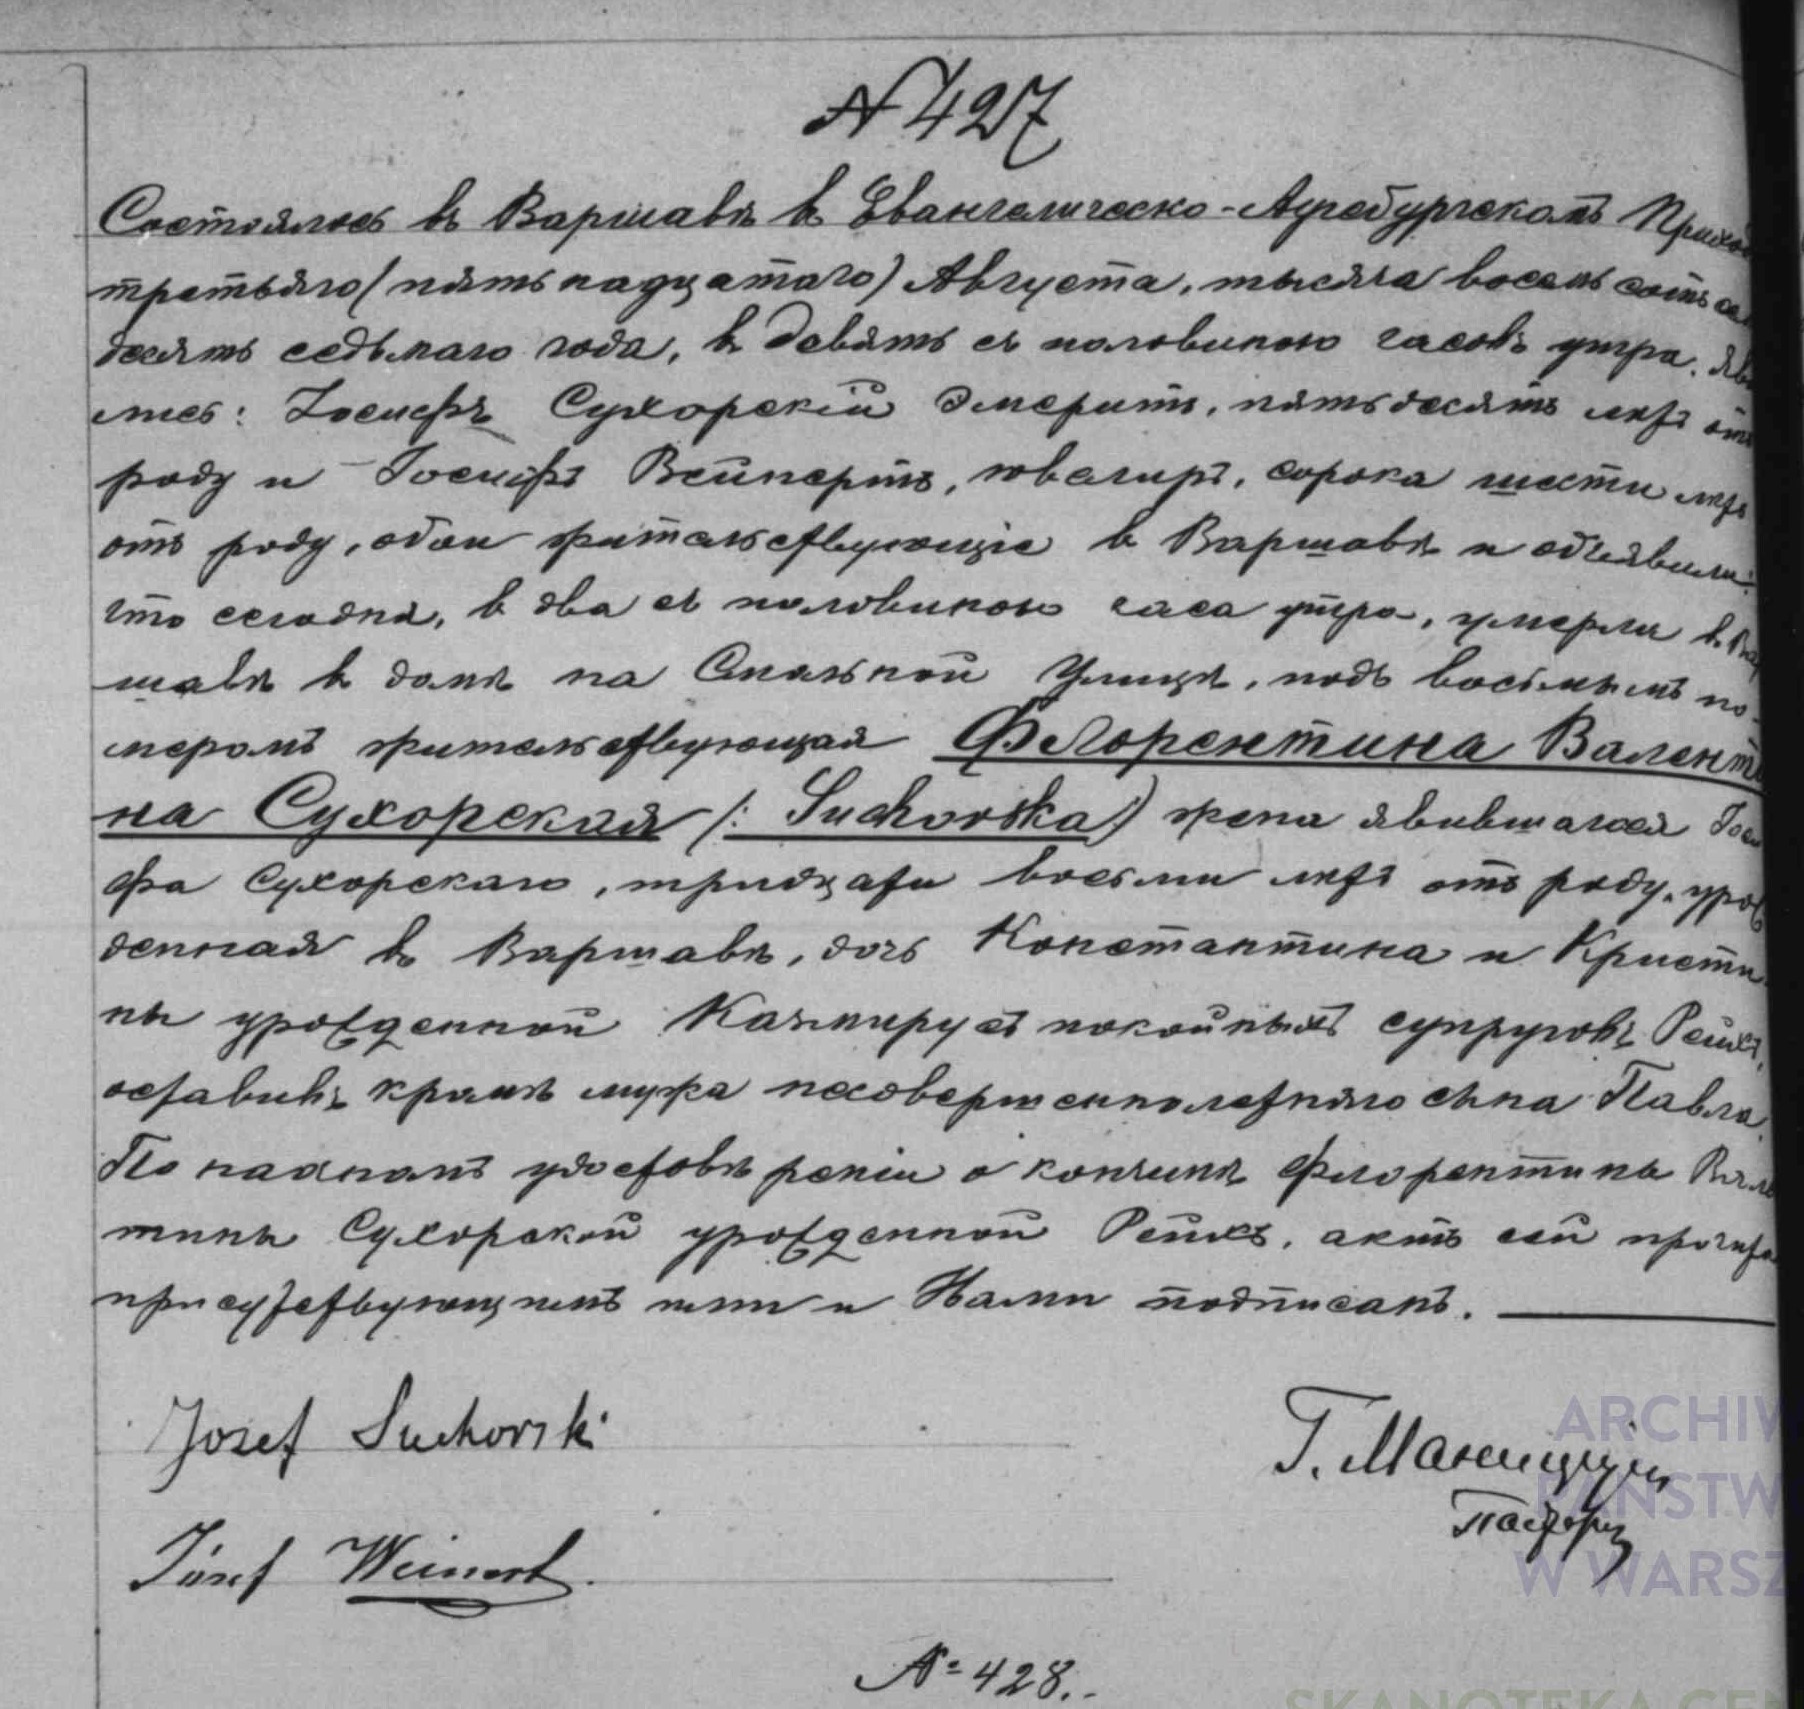 № 427
Состоялось въ Варшавѣ въ Евангелическо-Аугсбургскомъ Приход
третьяго (пятьнадцатаго) Августа, тысяча восемь сотъ се
десять седьмаго года, въ девять съ половиною часовъ утра. Яви
лись: Іосифъ Сухорскій Эмеритъ, пятьдесятъ лѣтъ отъ
роду и Іосифъ Вейнертъ, ювелиръ, сорока шести лѣтъ
отъ роду, обои жительствующіе въ Варшавѣ и объявили:
что сегодня, въ два съ половиною часа утра, умерла въ Вар
шавѣ въ домѣ на Смольной Улицѣ, подъ восьмымъ но-
меромъ жительствующая Флорентина Валенти
на Сухорская (: Suchorska:) жена явившагося Іоси
фа Сухорскаго, тридцати восьми лѣтъ отъ роду, урож
денная въ Варшавѣ, дочь Константина и Кристи
ны урожденной покойныхъ супруговъ Рейхъ,
оставивъ кромѣ мужа несовершеннолетняго сына Павла.
По наочномъ удостовѣреніи о кончинѣ Флорентины Вален
тины Сухорской урожденной Рейхъ, актъ сей прочитан
присутствующимъ ими и Нами подписанъ.
Josef Suchorski
Józef Weinert.
Г.
Пасторъ
№ 428.
ARCHIW
PAŃSTW
W WARSZ
SKANOTEKA GEN